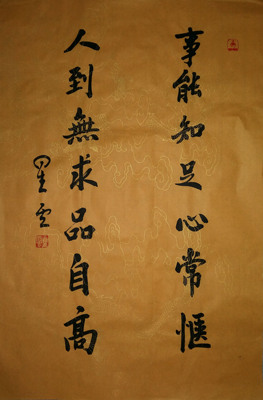 事能知足心常愜
人到無求品自高
星雲